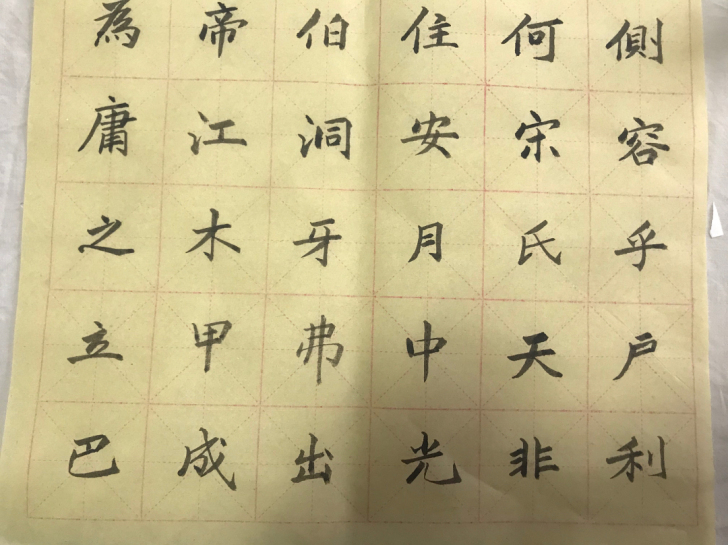 為帝伯住何側
庸江洞安宋容
之木牙月氏乎
立甲弗中天戶
巴成出光非利